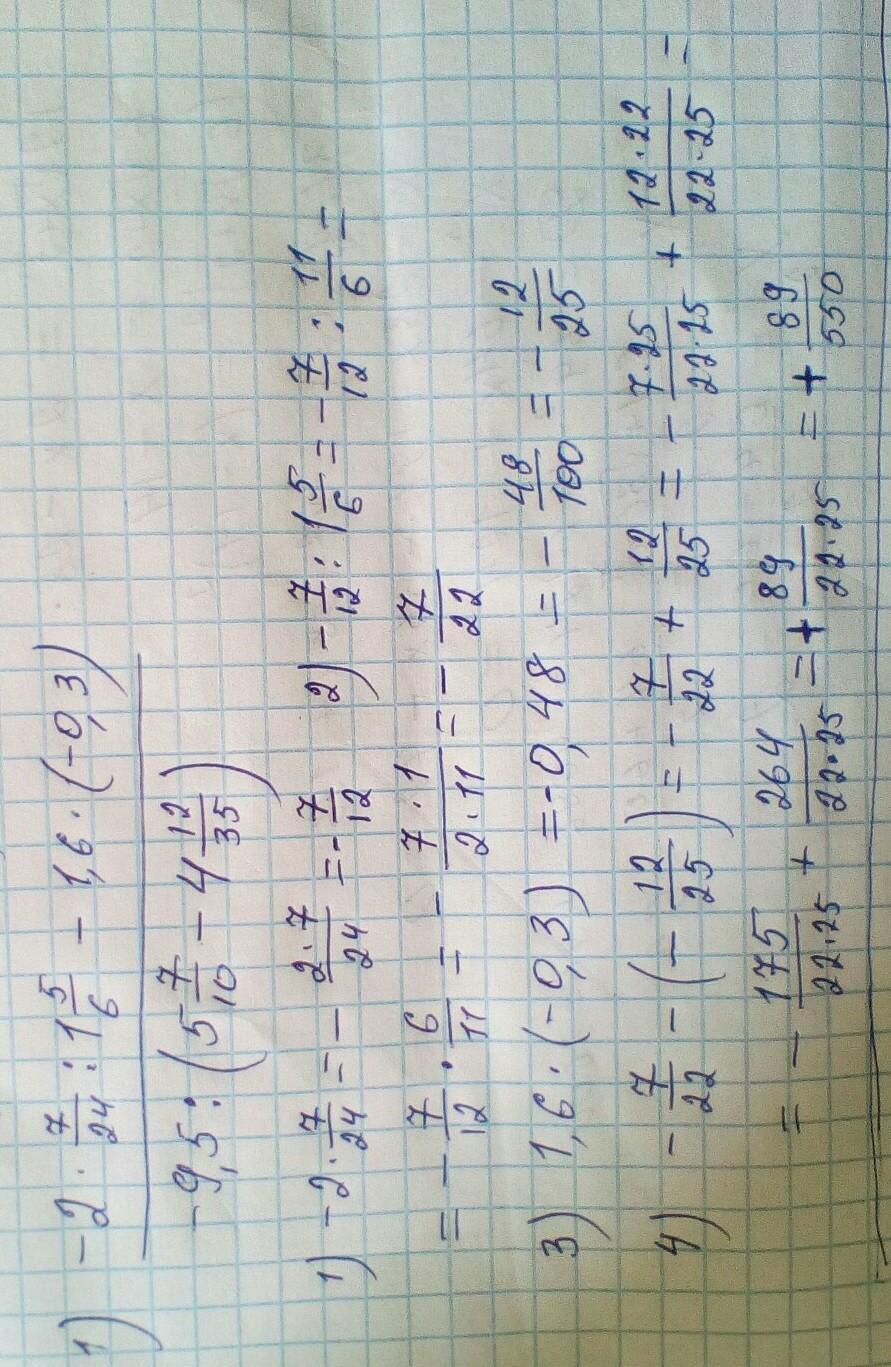 1) -2 · 7/24 : 1 5/6 - 1,6 · (-0,3)
-9,5 : (5 7/10 - 4 12/35)
1) -2 · 7/24 = - 2·7/24 = - 7/12 2) - 7/12 : 1 5/6 = - 7/12 : 11/6 =
= - 7/12 · 6/11 = - 7·1/2·11 = - 7/22
3) 1,6 · (-0,3) = -0,48 = - 48/100 = - 12/25
4) - 7/22 - (- 12/25) = - 7/22 + 12/25 = - 7·25/22·25 + 12·22/22·25 =
= - 175/22·25 + 264/22·25 = + 89/22·25 = + 89/550